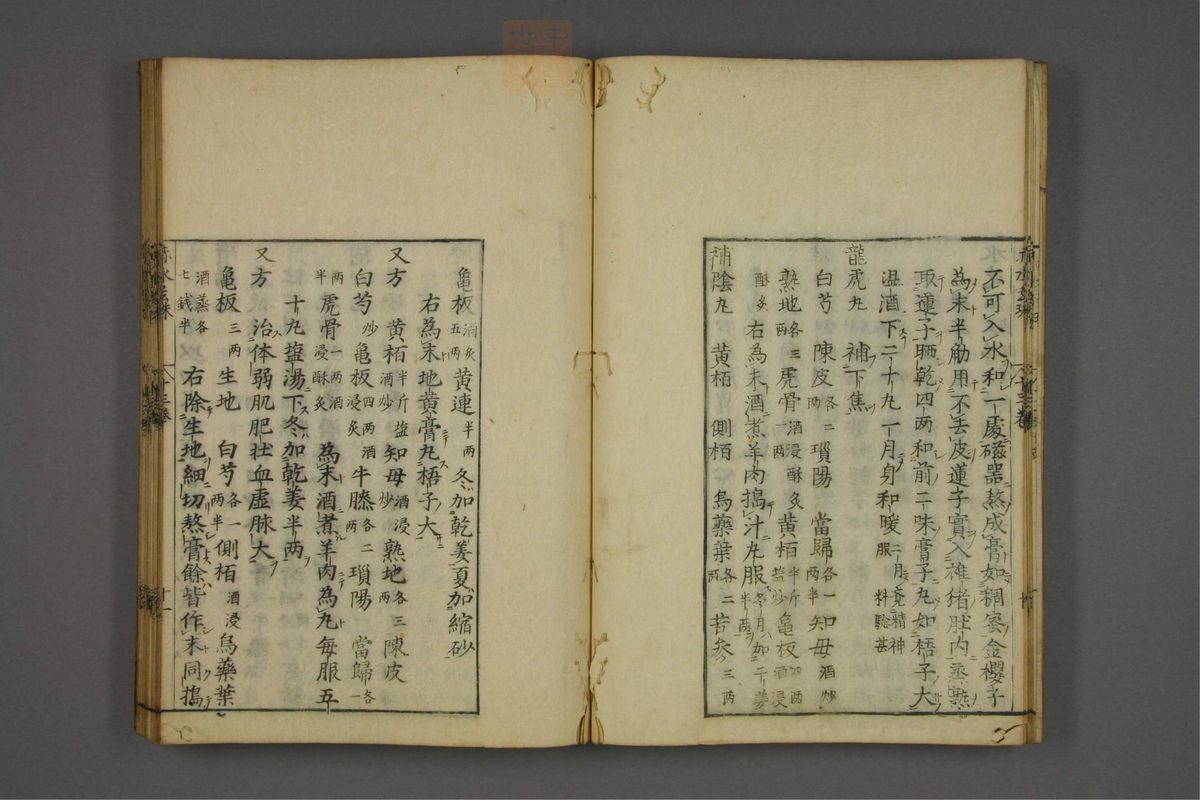 不可入水和一處磁器熬成膏如稠蜜金櫻子
為末半觔用不去皮蓮子實入雄猪肚內蒸熟
取蓮子晒乾四兩和前二味膏子丸如梧子大
温酒下二十丸一月身和暖服二月精神
龍虎丸 補下焦
白芍 陳皮各二兩 瑣陽 當歸各一兩半 知毋酒炒
熟地各三兩 虎骨酒浸酥炙一兩 黄栢半斤塩炒 亀板四兩酒浸
酥炙 右為末酒煮羊肉搗汁丸服冬月加干姜半兩
補陰丸 黄栢 側栢 烏藥葉各二兩 苦参三兩
亀板酒炙五兩 黄連半兩 冬加乾姜夏加縮砂
右為末地黄膏丸梧子大
又方 黄栢半斤塩酒炒 知毋酒浸炒 熟地各三兩 陳皮
白芍炒 亀板四兩酒浸炙 牛膝各二兩 瑣陽 當歸各一
兩半 虎骨一兩酒浸酥炙 為末酒煮羊肉為丸每服五
十丸塩湯下冬加乾姜半兩
又方 治体弱肌肥壮血虛脉大
亀板三兩 生地 白芍各一兩半 側栢酒浸 烏藥葉
酒蒸各七錢半 右除生地細切熬膏餘皆作末同搗
十三卷
十一